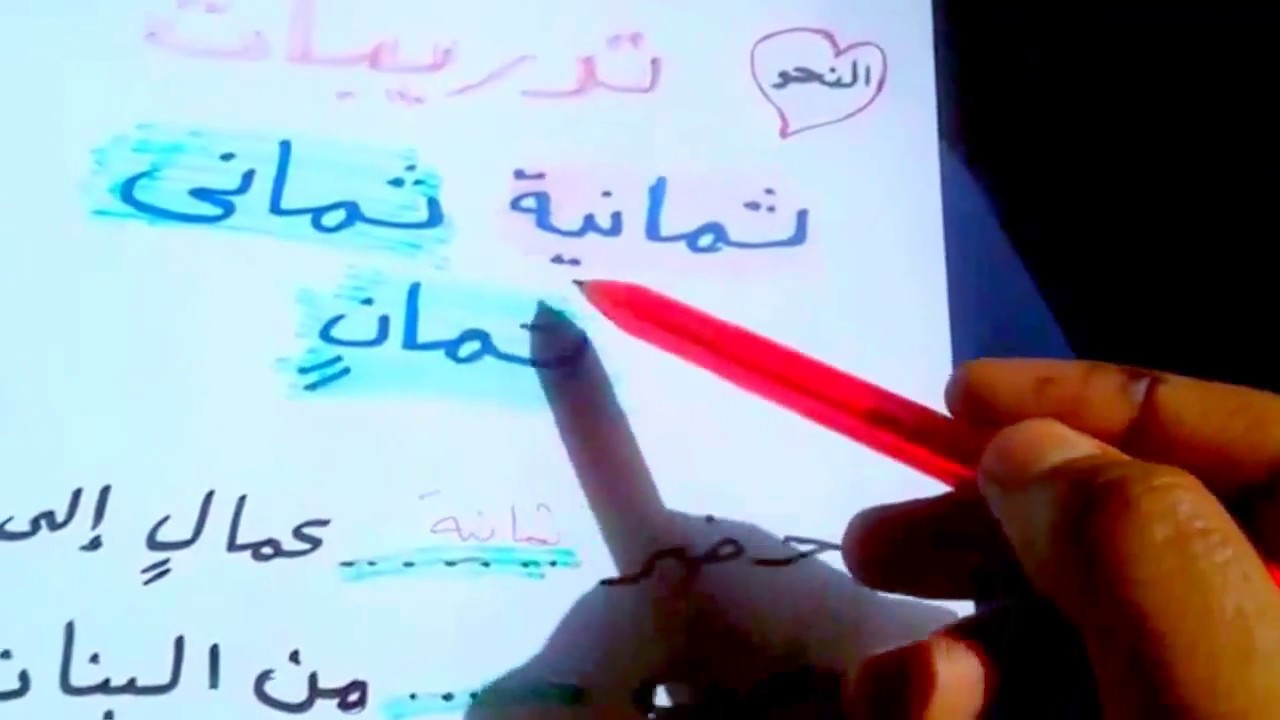 النحو تدريبات
ثمانية ثمانى
ثمانٍ
حضر ثمانيةَ عمالٍ إلى
من البنات